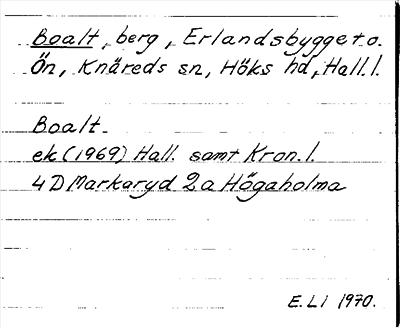 Boalt, berg, Erlandsbygget o.
Ön, Knäreds sn, Höks hd, Hall. l.
Boalt
ek (1969) Hall. samt Kron. l.
4 D Markaryd 2a Högaholma
E. Li 1970.